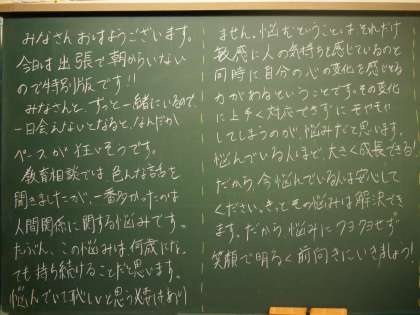 みなさんおはようございます。
今日は出張で朝からいない
ので特別版です!!
みなさんと、ずっと一緒にいるので、
一日会えないとなると、なんだか
ペースが狂いそうです。
教育相談では色んな話を
聞きましたが、一番多かったのは
人間関係に関する悩みです。
たぶん、この悩みは何歳になっ
ても持ち続けることだと思います。
悩んでいて恥しいと思う必要はあり
ません。悩むということはそれだけ
敏感に人の気持ちを感じているのと
同時に自分の心の変化を感じとる
力があるということです。その変化
に上手く対応できずにモヤモヤ
してしまうのが、悩みだと思います。
悩んでいる人ほど、大きく成長できる!
だから、今悩んでいる人は安心して
ください。きっとその悩みは解決でき
ます。だから悩みにクヨクヨせず
笑顔で明るく前向きにいきましょう!